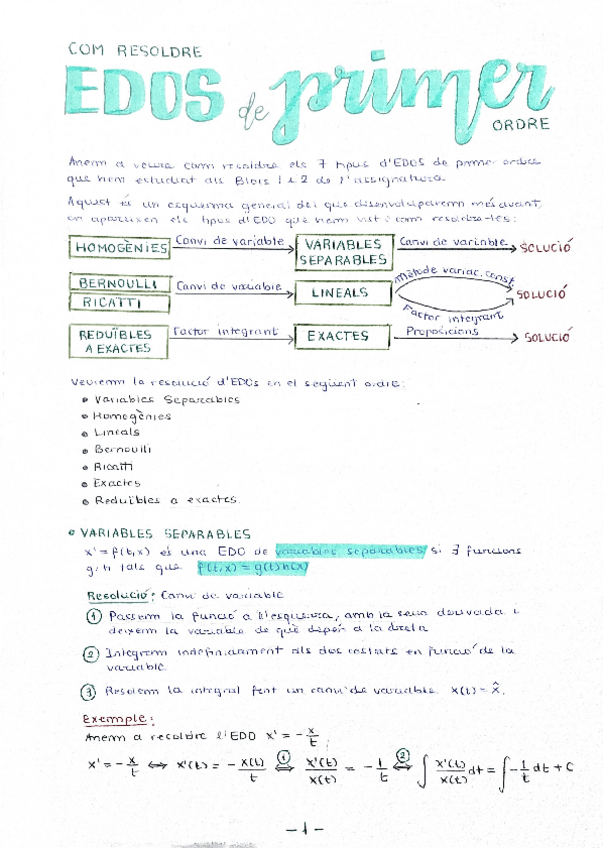 COM RESOLDRE
EDOS de primer
ORDRE
Anem a veure com resoldre els 7 tipus d'EDOS de primer ordre
que hem estudiat als Blocs 1 i 2 de l'assignatura.
Aquest és un esquema general del que desenvoluparem més avant,
on apareixen els tipus d'EDO que hem vist i com resoldre-les:
HOMOGÈNIES Canvi de variable VARIABLES SEPARABLES Canvi de variable SOLUCIÓ
BERNOULLI
RICATTI
Canvi de variable LINEALS Mètode variac. const. Factor integrant SOLUCIÓ
REDUÏBLES A EXACTES Factor integrant EXACTES Proposicions SOLUCIÓ
Veurem la resolució d'EDOs en el següent ordre:
• Variables Separables
• Homogènies
• Lineals
• Bernoulli
• Ricatti
• Exactes
• Reduïbles a exactes.
• VARIABLES SEPARABLES
x' = f(t,x) és una EDO de variables separables si ∃ funcions
g, h tals que f(t,x) = g(t)h(x)
Resolució: Canvi de variable
① Passem la funció a l'esquerra, amb la seua derivada i
deixem la variable de què depén a la dreta
② Integrem indefinidament als dos costats en funció de la
variable.
③ Resolem la integral fent un canvi de variable. x(t) = x̂.
Exemple:
Anem a resoldre l'EDO x' = -x/t:
x' = -x/t ⟺ x'(t) = -x(t)/t ①⟺ x'(t)/x(t) = -1/t ②⟺ ∫ x'(t)/x(t) dt = ∫ -1/t dt + C
-1-